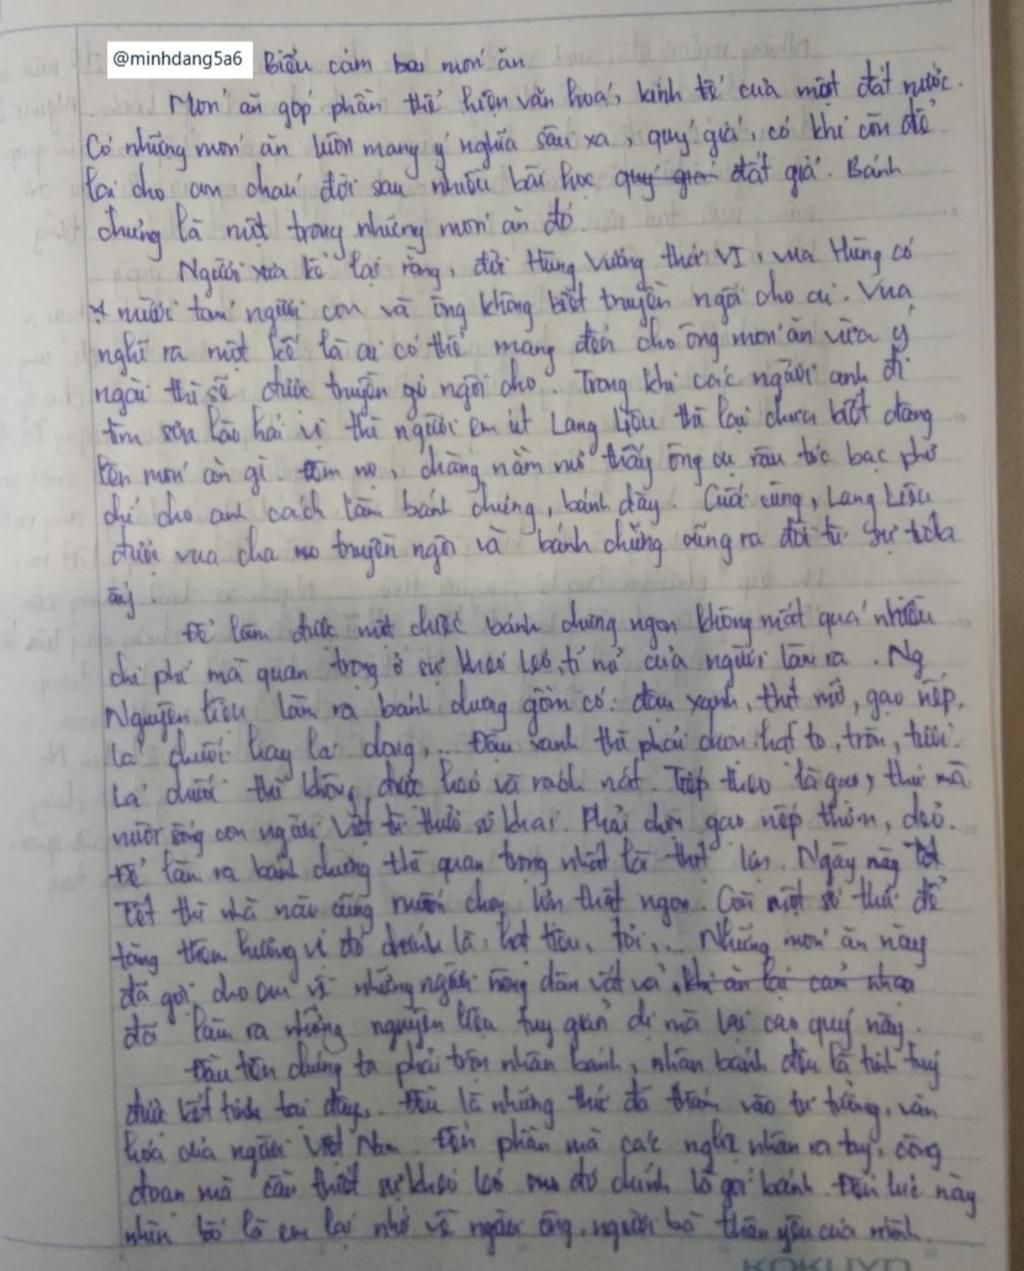 @minhdang5a6
Biểu cảm bau món ăn
Món ăn góp phần thể hiện văn hoá, kinh tế của một đất nước.
Có những món ăn luôn mang ý nghĩa sâu xa, quý giá, có khi còn để
lại cho con cháu đời sau nhiều bài học quý giá đắt giá. Bánh
chưng là một trong những món ăn đó.
Người xưa kể lại rằng, đời Hùng Vương thứ VI, vua Hùng có
mười tám người con và ông không biết truyền ngôi cho ai. Vua
nghĩ ra một kế là ai có thể mang đến cho ông món ăn vừa ý
ngài thì sẽ được truyền ngôi cho. Trong khi các người anh đi
tìm sơn hào hải vị thì người em út Lang Liêu thì lại chưa biết dâng
lên món ăn gì. Đêm nọ, chàng nằm mơ thấy ông cụ râu tóc bạc phơ
chỉ cho anh cách làm bánh chưng, bánh dầy. Cuối cùng, Lang Liêu
được vua cha truyền ngôi và bánh chưng cũng ra đời từ sự tích
ấy
Để làm được một chiếc bánh chưng ngon không mất quá nhiều
chi phí mà quan trọng ở sự khéo léo, tỉ mỉ của người làm ra. Ng
Nguyên liệu làm ra bánh chưng gồm có: đậu xanh, thịt mỡ, gạo nếp,
lá chuối hay lá dong,... Đậu xanh thì phải chọn hạt to, tròn, tươi.
Lá chuối thì không được héo và rách nát. Tiếp theo là gạo, thứ mà
nuôi sống con người Việt từ thuở sơ khai. Phải chọn gạo nếp thơm, dẻo.
Để làm ra bánh chưng thì quan trọng nhất là thịt lợn. Ngày nay Tết
Tết thì nhà nào cũng muốn chọn lợn thật ngon. Còn một số thứ để
tăng thêm hương vị đó chính là: hạt tiêu, tỏi,... Những món ăn này
đã gợi cho em về những người nông dân vất vả, khi ăn lại cảm nhận
đã làm ra những nguyên liệu tuy giản dị mà lại cao quý này.
Đầu tiên chúng ta phải trộn nhân bánh, nhân bánh đều là tinh tuý
được kết tinh tại đây. Đều là những thứ đã thấm vào tư tưởng, văn
hóa của người Việt Nam. Đến phần mà các nghệ nhân ra tay, công
đoạn mà cần thiết sự khéo léo đó chính là gói bánh. Đến lúc này
nhìn bố là em lại nhớ về người ông, người bà thân yêu của mình.
KOKUYO